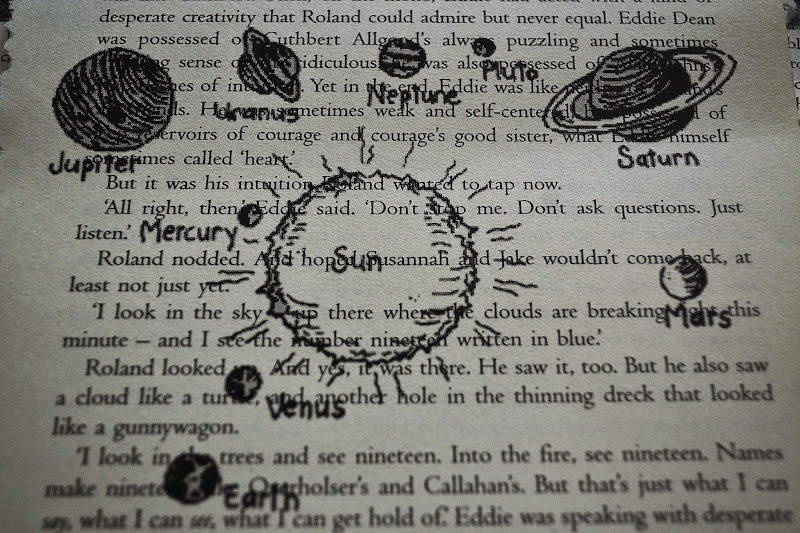 desperate creativity that Roland could admire but never equal. Eddie Dean
was possessed of Cuthbert Allgood's always puzzling and sometimes
sense of ridiculous was also possessed of
of Yet in the end, Eddie was like
sometimes weak and self-centered of
reservoirs of courage and courage's good sister, what Eddie himself
sometimes called 'heart.'
But it was his intuition Roland wanted to tap now.
'All right, then,' Eddie said. 'Don't stop me. Don't ask questions. Just
listen.'
Roland nodded. And hoped Susannah and Jake wouldn't come back, at
least not just yet.
'I look in the sky – up there where the clouds are breaking right this
minute – and I see the number nineteen written in blue.'
Roland looked up. And yes, it was there. He saw it, too. But he also saw
a cloud like a turtle, and another hole in the thinning dreck that looked
like a gunnywagon.
'I look in the trees and see nineteen. Into the fire, see nineteen. Names
make nineteen, like Overholser's and Callahan's. But that's just what I can
say, what I can see, what I can get hold of.' Eddie was speaking with desperate
Jupiter
Uranus
Neptune
Pluto
Saturn
Mercury
Sun
Mars
Venus
Earth